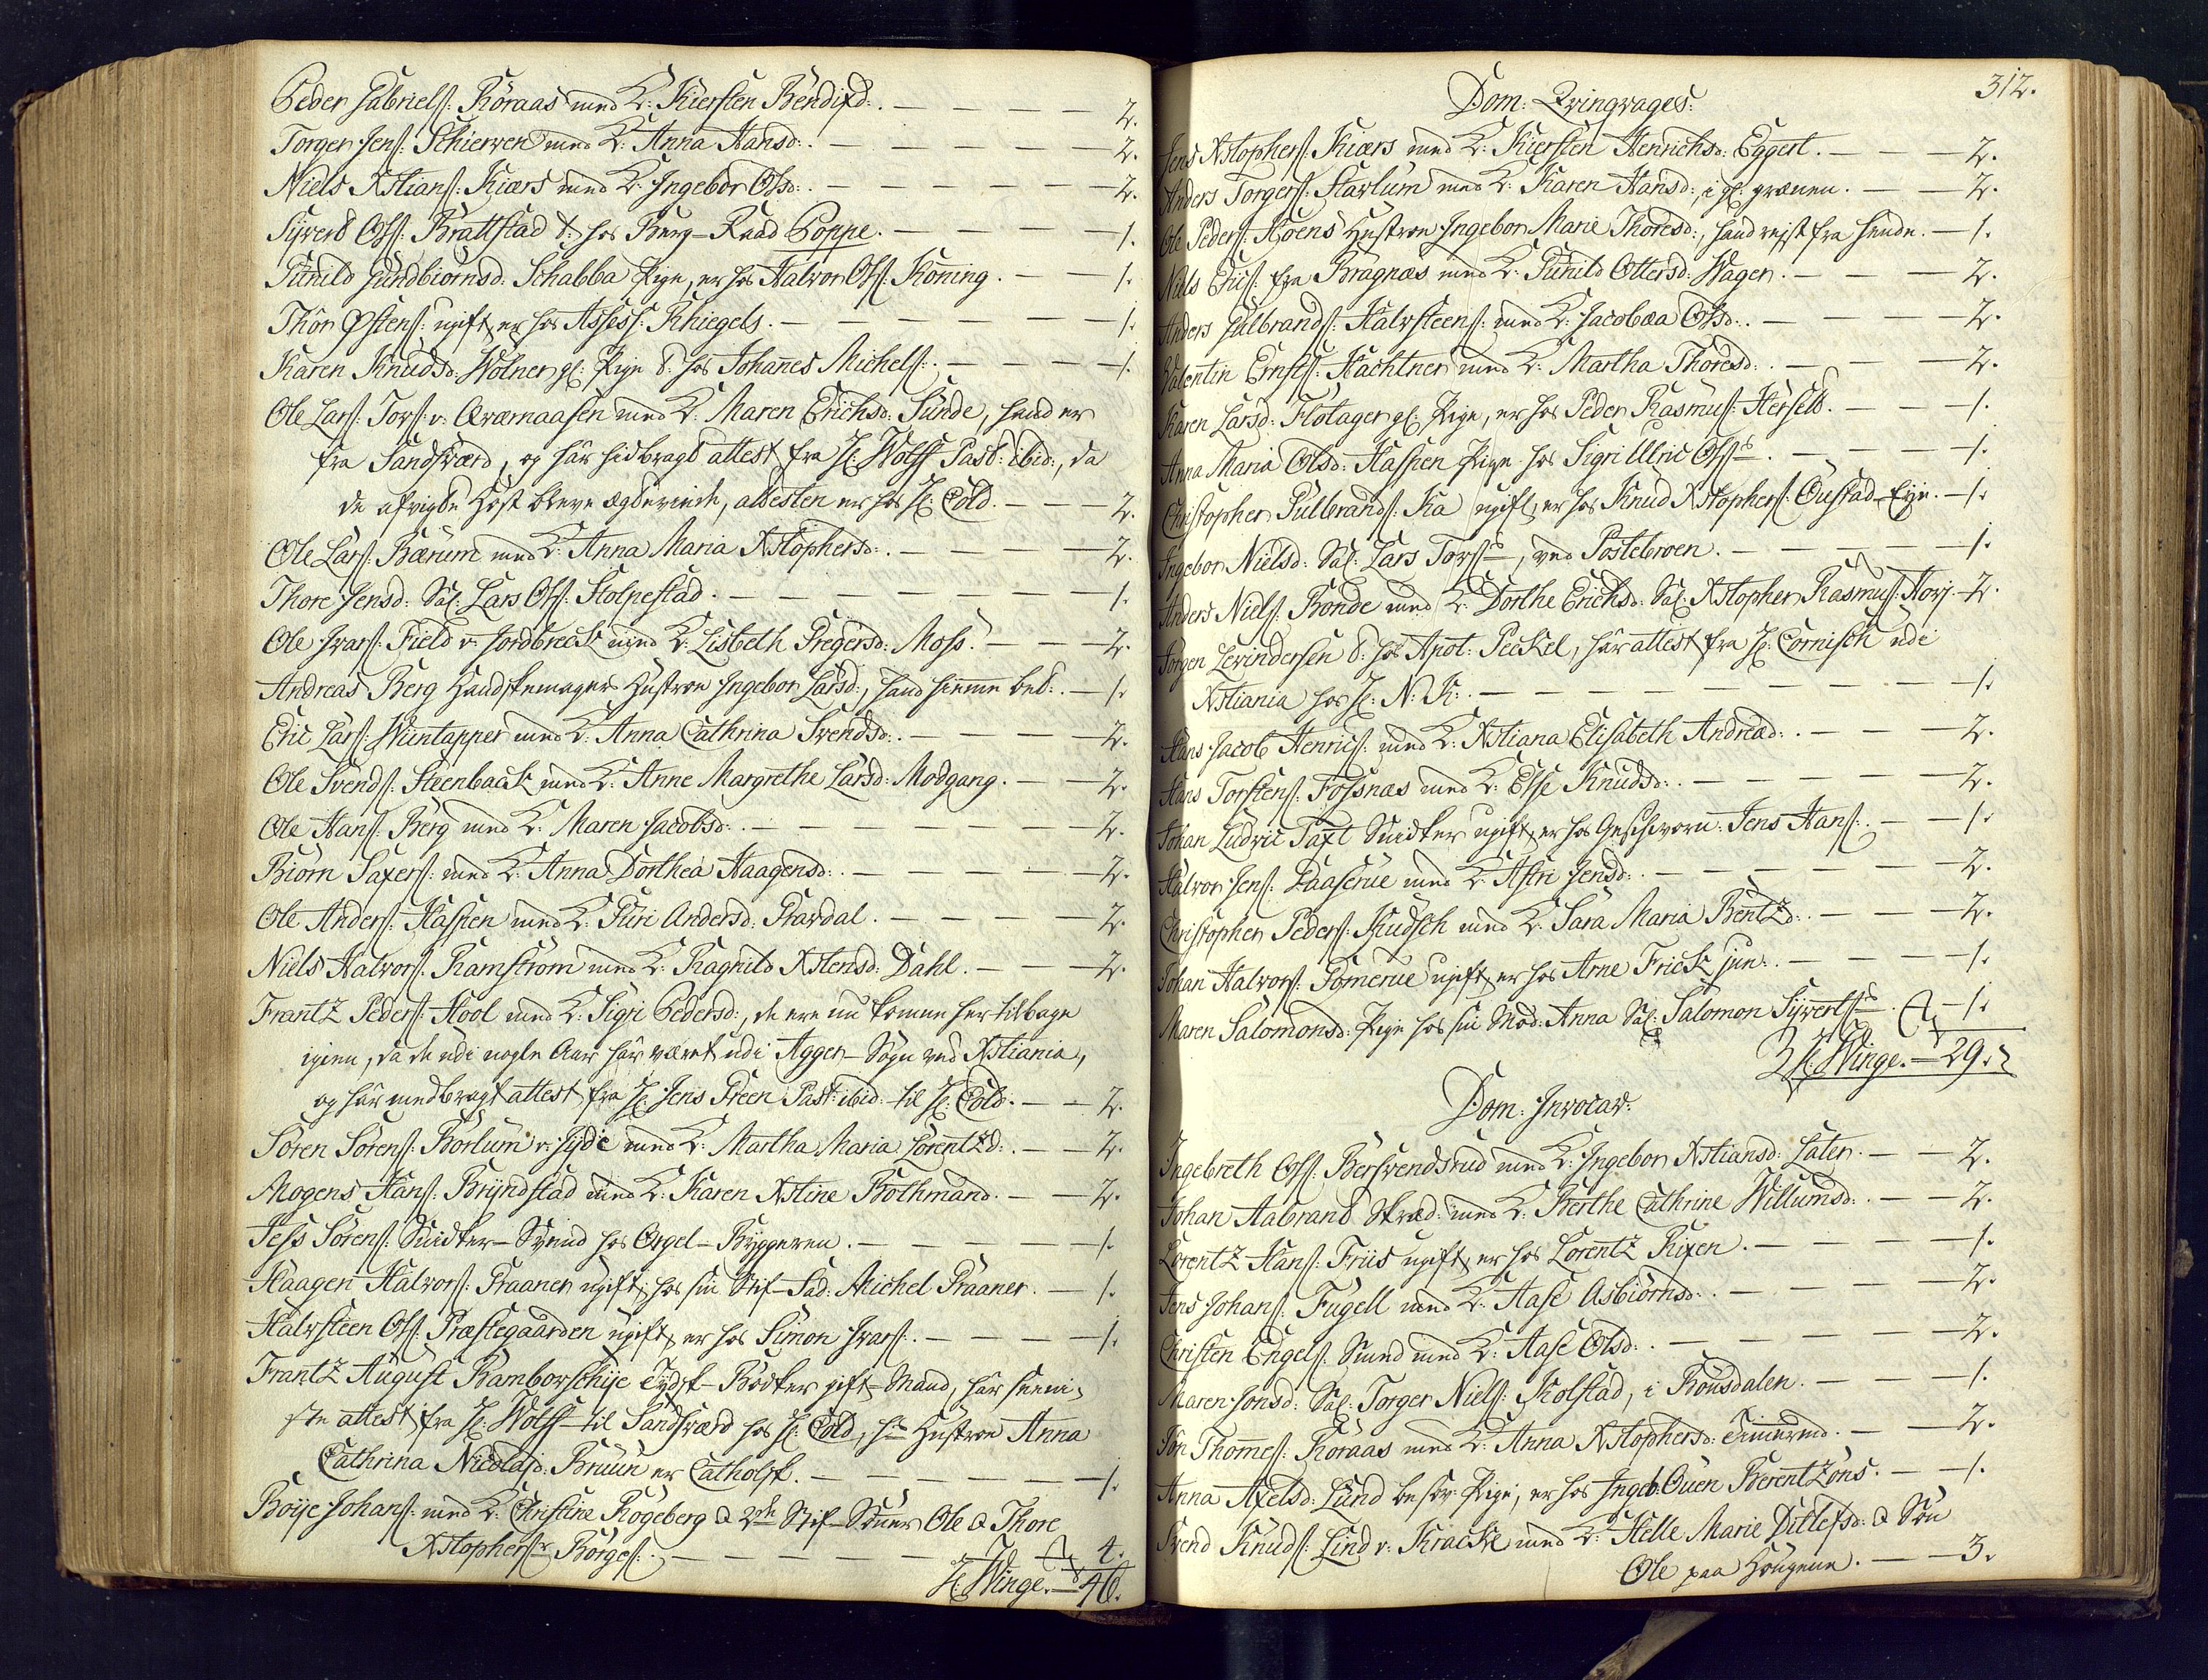 Peder Gabriels: Röraas med K: Kiersten Bendixd: . — — — — 2.
Torger Jens: Schierven med K: Anna Hansd: . — — — — 2.
Niels Xstians: Kiærs med K: Ingebor Olsd: . — — — — 2.
Syvert Ols: Brattstad t: hos Berg-Raad Poppe. — — — — 1.
Gunild Gundbiörnsd: Schabba Pige, er hos Halvor Ols: Köning. — — — 1.
Thor Östens: ugift, er hos Assess: Khiegels. — — — — 1.
Karen Knudsd: Wölner gl: Pige t: hos Johañes Michels: . — — — 1.
Ole Lars: Tors: v: Qværnaasen med K: Maren Erichsd: Sunde, hand er
fra Sandsværd, og har hidbragt attest fra H: Wolff Past: ibid:, da
de afvigte Höst bleve egteviede, attesten er hos H: Cold. — — — 2.
Ole Lars: Bærum med K: Anna Maria Xstophersd: . — — — 2.
Thore Jensd: Sal: Lars Ols: Stolpestad. — — — — 1.
Ole Ivars: Field v: Jordbreck med K: Lisbeth Gregersd: Moss. — — 2.
Andreas Berg Handskemagers Hustroe Ingebor Larsd:, hand hiemme bet: . — 1.
Eric Lars: Wiintapper med K: Anna Cathrina Svendsd: . — — — 2.
Ole Svends: Steenback med K: Anne Margrethe Larsd: Modgang. — — 2.
Ole Hans: Berg med K: Maren Jacobsd: . — — — — 2.
Biörn Saxers: med K: Anna Dorthea Haagensd: . — — — — 2.
Ole Anders: Haslien med K: Guri Andersd: Gravdal. — — — 2.
Niels Halvors: Ramström med K: Ragnild Xstensd: Dahl. — — — 2.
Frantz Peders: Hool med K: Sigri Pedersd:, de ere nu komne her tilbage
igien, da de udi nogle Aar har været udi Agger-Sogn ved Xstiania,
og har medbragt attest fra H: Jens Green Past: ibid: til H: Cold. — — 2.
Sören Sörens: Borlum v: Gyde med K: Martha Maria Lorentzd: . — — 2.
Mogens Hans: Bryndstad med K: Karen Xstine Bothmand. — — 2.
Jess Sörens: Snidker-Svend hos Orgel-Byggeren. — — — — 1.
Haagen Halvors: Praaner ugift, hos sin Stif-Fad: Michel Praaner. — — 1.
Halvsteen Ols: Præstegaarden ugift, er hos Simon Ivars: . — — — 1.
Frantz August Ramborschije Tydsk-Bödker gift-Mand, har
attest fra H: Wolff til Sandsværd hos H: Cold, hs Hustroe Anna
Cathrina Nicolaid: Bruun er Catholsk. — — — — 1.
Böije Johans: med K: Christine Rogeberg & 2de Stif-Sönner Ole & Thore
Xstophers: Börges: . — — — — 4.
H: Winge. — 46.
312.
Dom: Qvinqvages:
Jens Xstophers: Kiærs med K: Kiersten Henrichsd: Eggert. — — 2.
Anders Torgers: Skarlum med K: Karen Hansd:, i gl: grænen. — — 2.
Ole Peders: Hoens Hustroe Ingebor Marie Thoresd:, hand rejst fra hende. — 1.
Niels Eris: fra Bragnæs med K: Gunild Ottersd: Wager. — — — 2.
Anders Gulbrands: Halvsteens: med K: Jacobæa Olsd: . — — — 2.
Valentin Ernsts: Hachtner med K: Martha Thoresd: . — — — 2.
Karen Larsd: Flotager gl: Pige, er hos Peder Rasmus: Herseth. — — 1.
Anna Maria Olsd: Haslien Pige hos Sigri Ulric Ols: . — — — 1.
Christopher Gulbrands: Ka ugift, er hos Knud Xstophers: Oustad-Eye. — 1.
Ingebor Nielsd: Sal: Lars Tors:, ved Postebroen. — — — — 1.
Anders Niels: Bonde med K: Dorthe Erichsd: Sal: Xstopher Rasmus: Hovj. — 2.
Jörgen Levindersen t: hos Apot: Peckel, har attest fra H: Cornisch udi
Xstiania hos H: N: K: . — — — — 1.
Hans Jacob Henrics: med K: Xstiana Elisabeth Andread: . — — — 2.
Hans Torstens: Fossnæs med K: Else Knudsd: . — — — — 2.
Johan Ludvic Taxt Snidker ugift, er hos Geschworn: Jens Hans: . — — 1.
Halvor Jens: Daaserue med K: Astri Jensd: . — — — — 2.
Christopher Peders: Kudsch med K: Sara Maria Bentzd: . — — — 2.
Johan Halvors: Gomerue ugift, er hos Arne Frick jun: . — — — 1.
Maren Salomonsd: Pige hos sin Mod: Anna Sal: Salomon Syverts: . — 1.
H: Winge. — 29.
Dom: Invocav:
Ingebreth Ols: Bersvendsrud med K: Ingebor Xstiansd: Sater. — — 2.
Johan Aabrand Skræd: med K: Berthe Cathrine Willumsd: . — — 2.
Lorentz Hans: Friis ugift, er hos Lorentz Rixen. — — — 1.
Jens Johans: Fugell med K: Aase Asbiörnsd: . — — — 2.
Christen Engels: Smed med K: Aase Olsd: . — — — — 2.
Maren Jonsd: Sal: Torger Niels: Kolstad, i Rousdalen. — — — 1.
Jon Thommes: Röraas med K: Anna Xstophersd: Timermd. — — 2.
Anna Axelsd: Lund besov: Pige, er hos Ingeb: Ouen Berentzöns. — — 1.
Svend Knuds: Lind v: Kracke med K: Helle Marie Ditlefsd: & Sön
Ole paa Hougene. — — 3.